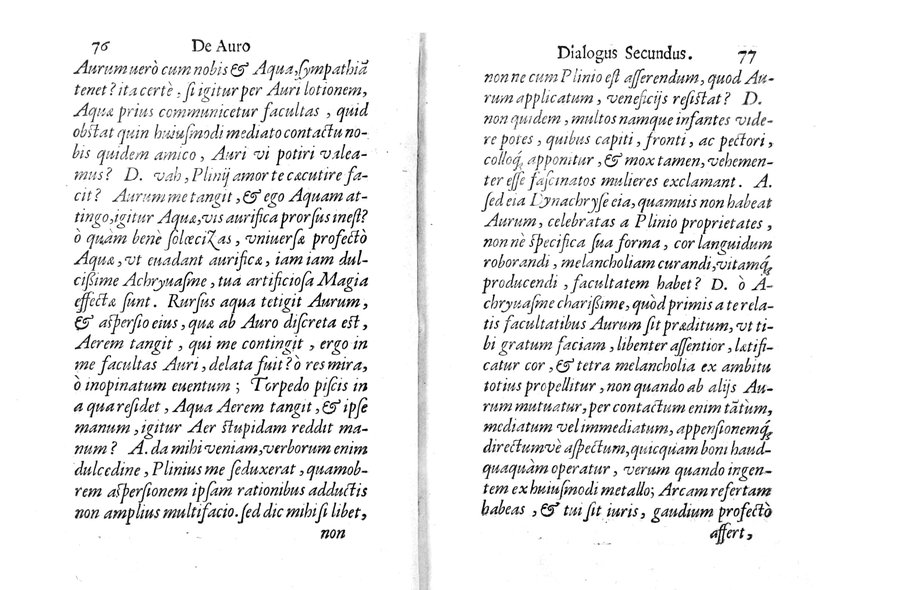 76 De Auro
Aurum uerò cum nobis & Aqua, sympathiā
tenet? ita certè; si igitur per Auri lotionem,
Aquæ prius communicetur facultas, quid
obstat quin huiusmodi mediato contactu no-
bis quidem amico, Auri vi potiri valea-
mus? D. vah, Plinij amor te cæcutire fa-
cit? Aurum me tangit, & ego Aquam at-
tingo, igitur Aquæ, vis aurifica prorsus inest?
ò quàm benè solœcizas, vniuersæ profectò
Aquæ, vt euadant aurificæ, iam iam dul-
cissime Achryuasme, tua artificiosa Magia
effectæ sunt. Rursus aqua tetigit Aurum,
& aspersio eius, quæ ab Auro discreta est,
Aerem tangit, qui me contingit, ergo in
me facultas Auri, delata fuit? ò res mira,
ò inopinatum euentum; Torpedo piscis in
a qua residet, Aqua Aerem tangit, & ipse
manum, igitur Aer stupidam reddit ma-
num? A. da mihi veniam, verborum enim
dulcedine, Plinius me seduxerat, quamob-
rem aspersionem ipsam rationibus adductis
non amplius multifacio. sed dic mihi si libet,
non
Dialogus Secundus. 77
non ne cum Plinio est asserendum, quod Au-
rum applicatum, veneficijs resistat? D.
non quidem, multos namque infantes vide-
re potes, quibus capiti, fronti, ac pectori,
colloq́; apponitur, & mox tamen, vehemen-
ter esse fascinatos mulieres exclamant. A.
sed eia Dynachryse eia, quamuis non habeat
Aurum, celebratas a Plinio proprietates,
non nè specifica sua forma, cor languidum
roborandi, melancholiam curandi, vitamq́;
producendi, facultatem habet? D. ò A-
chryuasme charissime, quòd primis a te rela-
tis facultatibus Aurum sit præditum, vt ti-
bi gratum faciam, libenter assentior, lætifi-
catur cor, & tetra melancholia ex ambitu
totius propellitur, non quando ab alijs Au-
rum mutuatur, per contactum enim tātùm,
mediatum vel immediatum, appensionemq́;
directumvè aspectum, quicquam boni haud-
quaquàm operatur, verum quando ingen-
tem ex huiusmodi metallo; Arcam refertam
habeas, & tui sit iuris, gaudium profectò
affert,